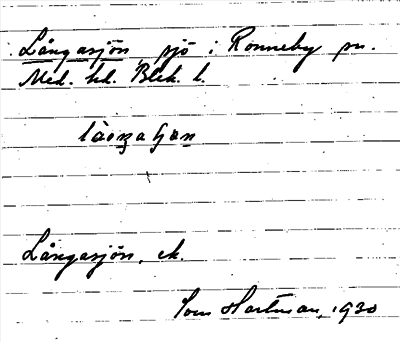 Långasjön sjö i Ronneby sn.
Med. hd. Blek. l.
Långasjön, ek.
Tom Hartman, 1930